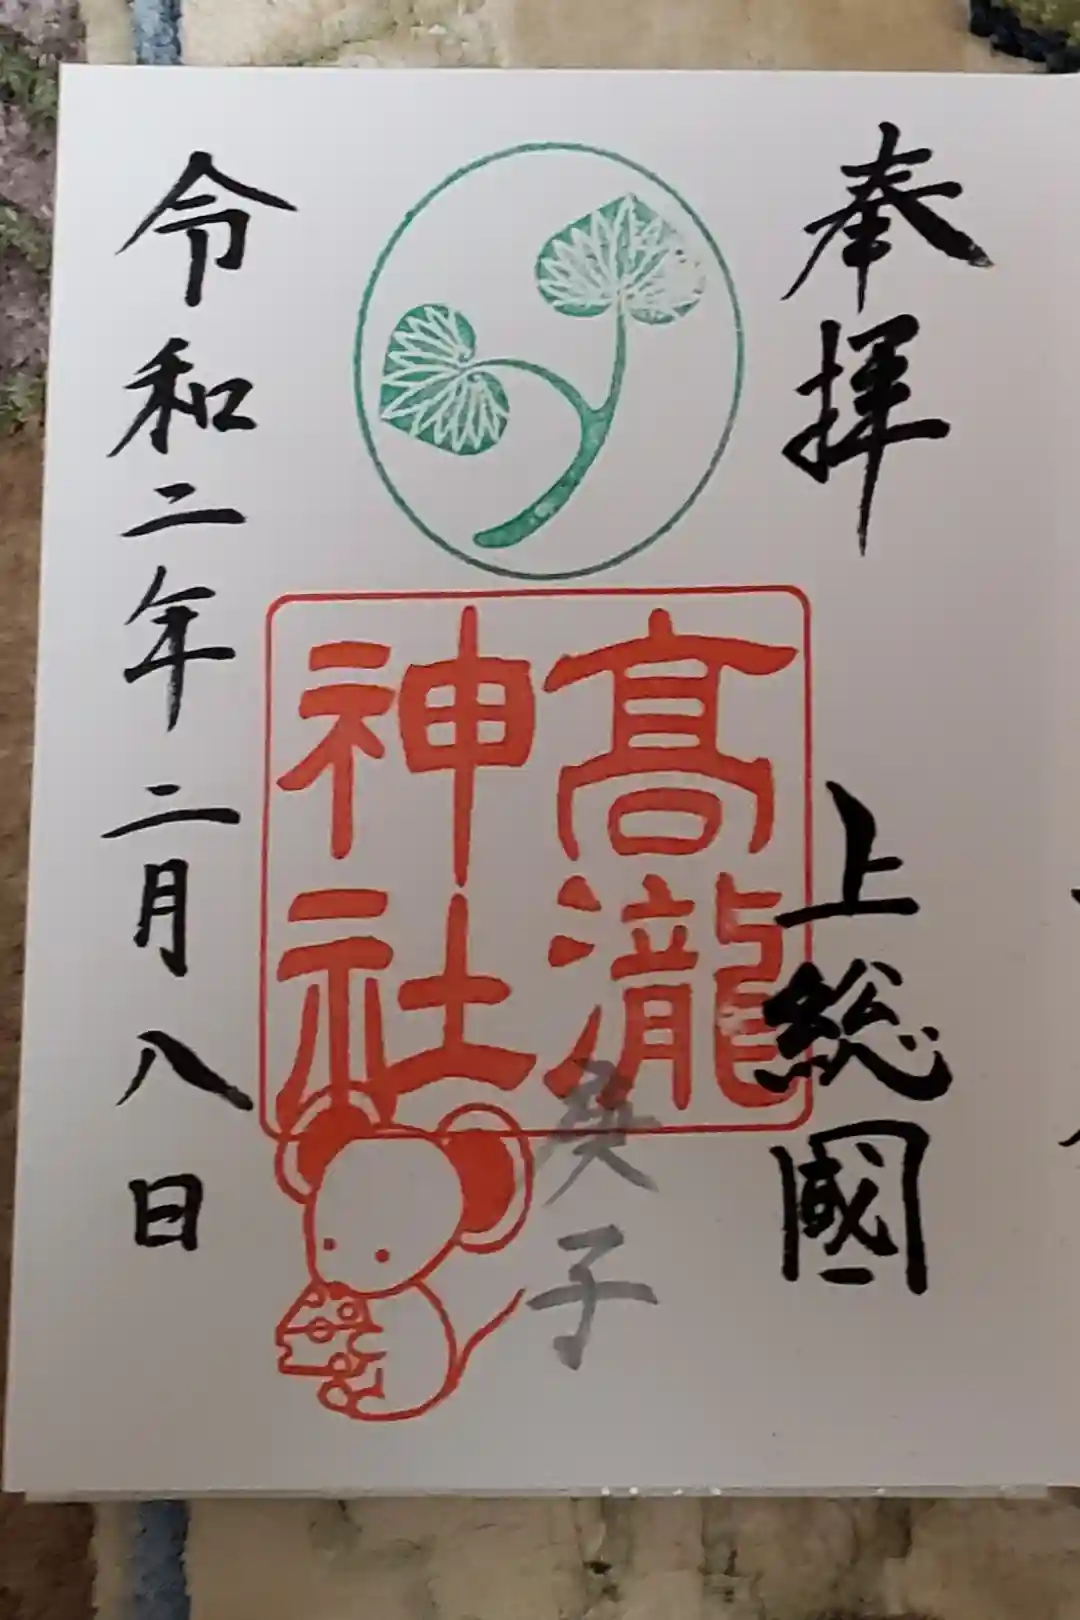 奉拝
上総國
髙瀧
神社
癸子
令和二年二月八日